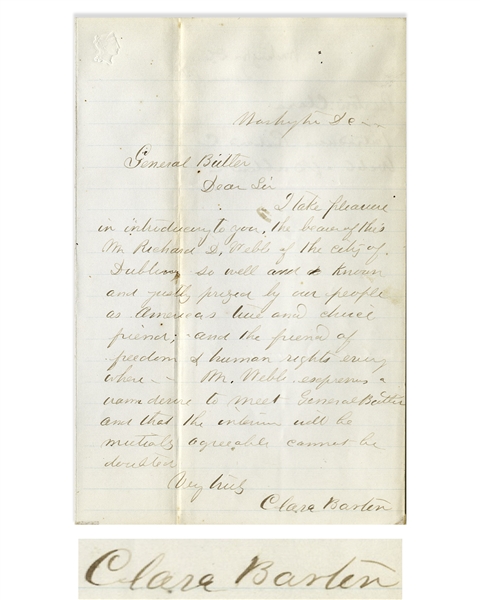 Washington D.C.
General Butler
Dear Sir
I take pleasure
in introducing to you, the bearer of this
Mr. Richard D. Webb of the city of
Dublin, so well and known
and justly prized by our people
as Americas true and
friend; and the friend of
freedom & human rights every
where - Mr. Webb expresses a
warm desire to meet General Butler
and that the interview will be
mutualy agreeable cannot be
doubted
Very truly
Clara Barton
Clara Barton